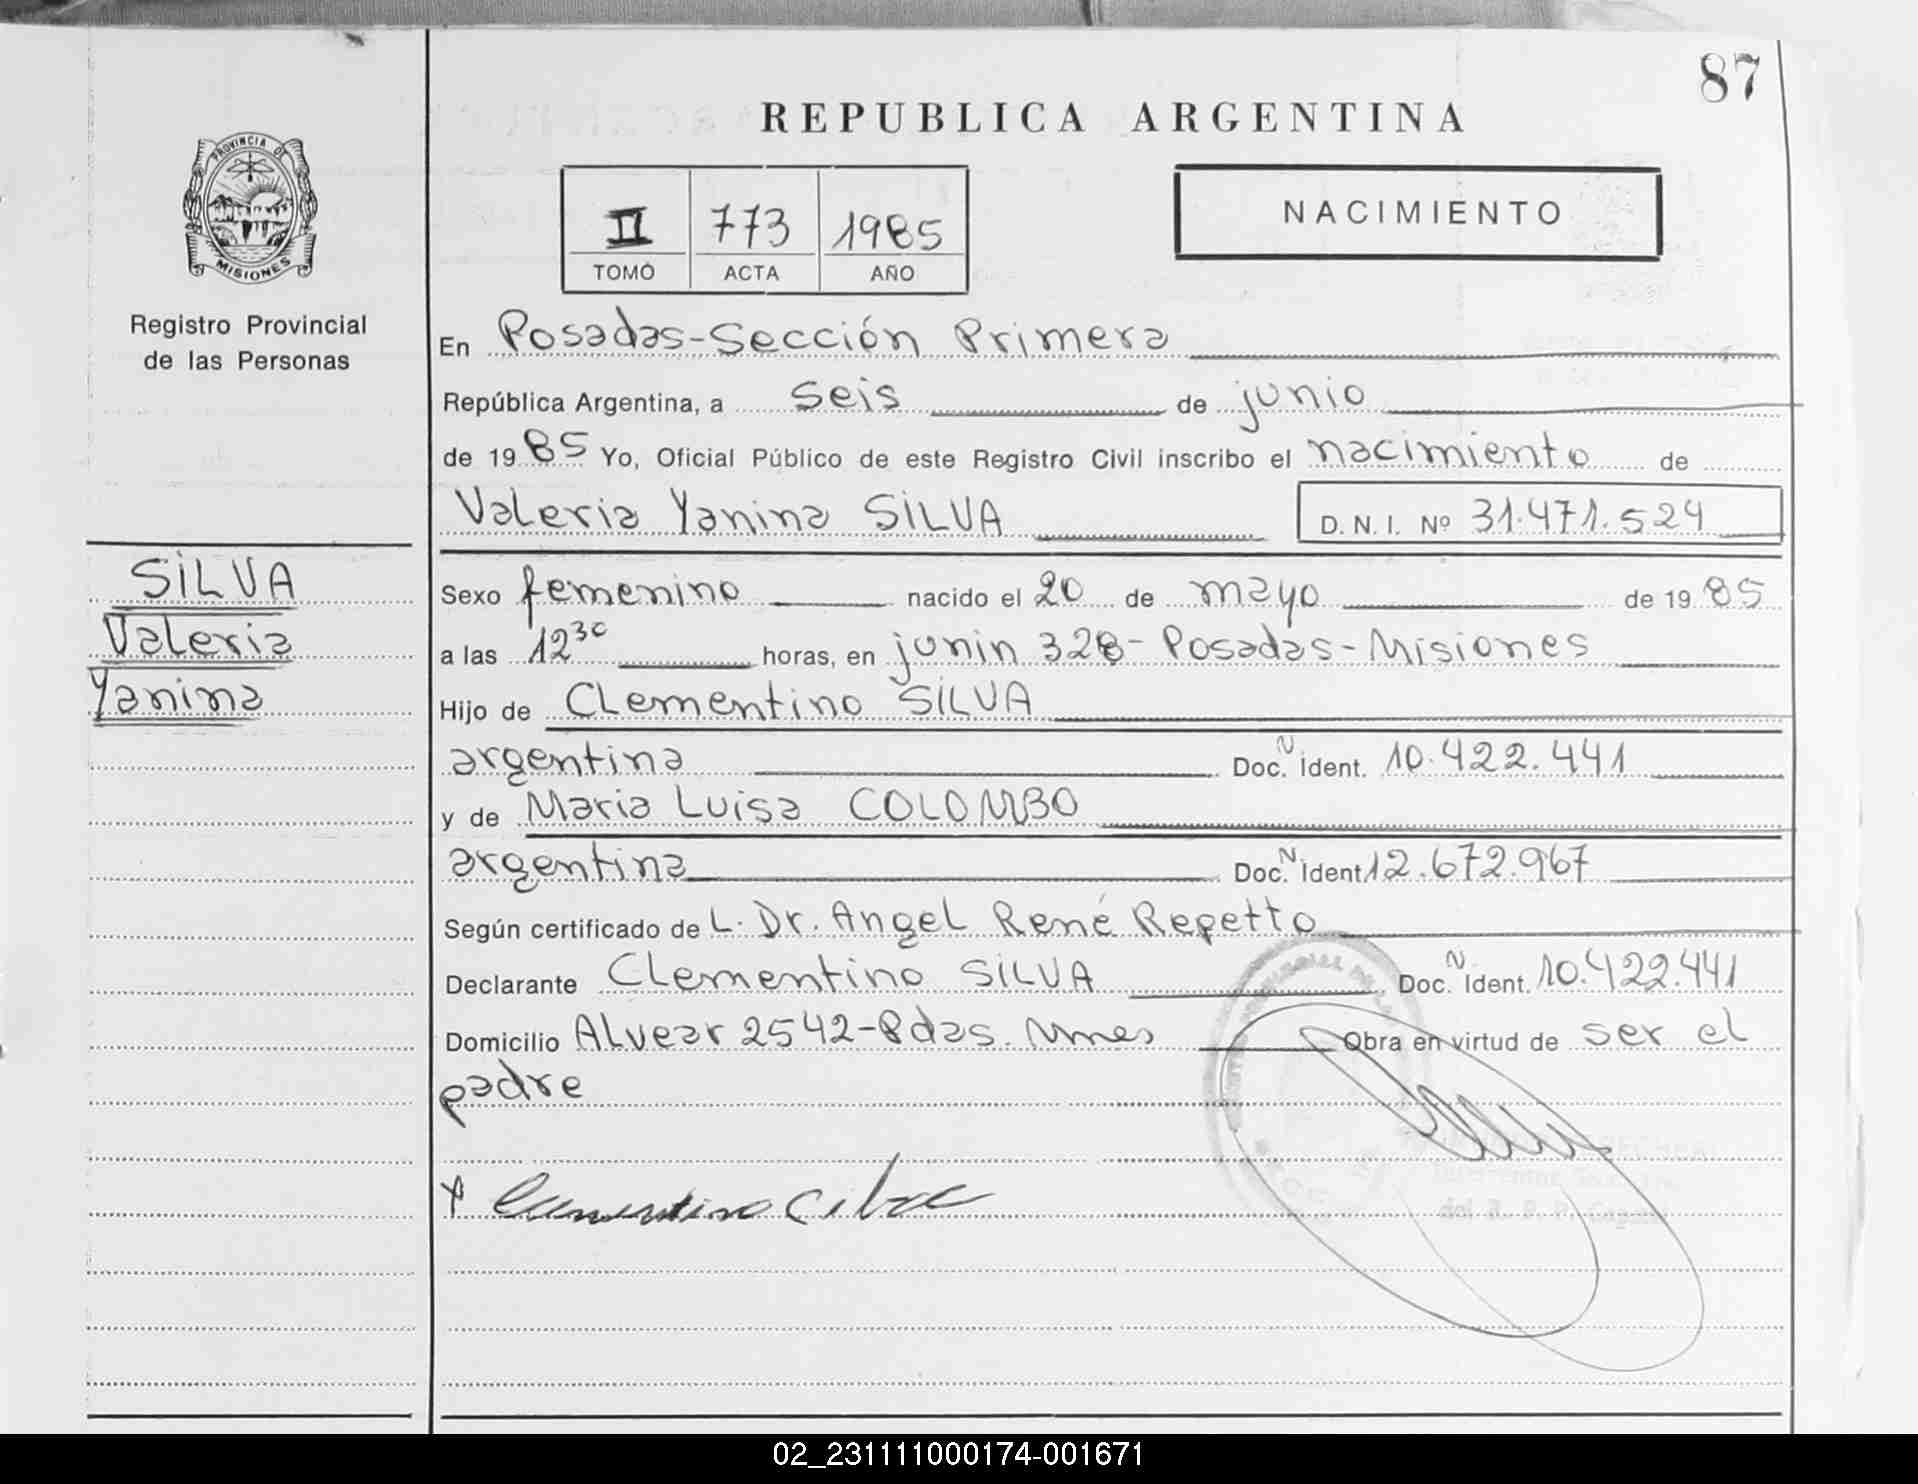 87
REPUBLICA ARGENTINA
PROVINCIA DE
MISIONES
Registro Provincial
de las Personas
II 773 1985
TOMO ACTA AÑO
NACIMIENTO
En Posadas-Sección Primera
República Argentina, a seis de junio
de 1985 Yo, Oficial Público de este Registro Civil inscribo el nacimiento de
Valeria Yanina SILVA D. N. I. Nº 31.471.524
SILVA
Valeria
Yanina
Sexo femenino nacido el 20 de mayo de 1985
a las 12 30 horas, en junin 328- Posadas-Misiones
Hijo de Clementino SILVA
argentina Doc. N Ident. 10.422.441
y de Maria Luisa COLOMBO
argentina Doc. N Ident. 12.672.967
Según certificado de L. Dr. Angel René Repetto
Declarante Clementino SILVA Doc. N Ident. 10.422.441
Domicilio Alvear 2542-Pdas. Mnes Obra en virtud de ser el
padre
02_231111000174-001671